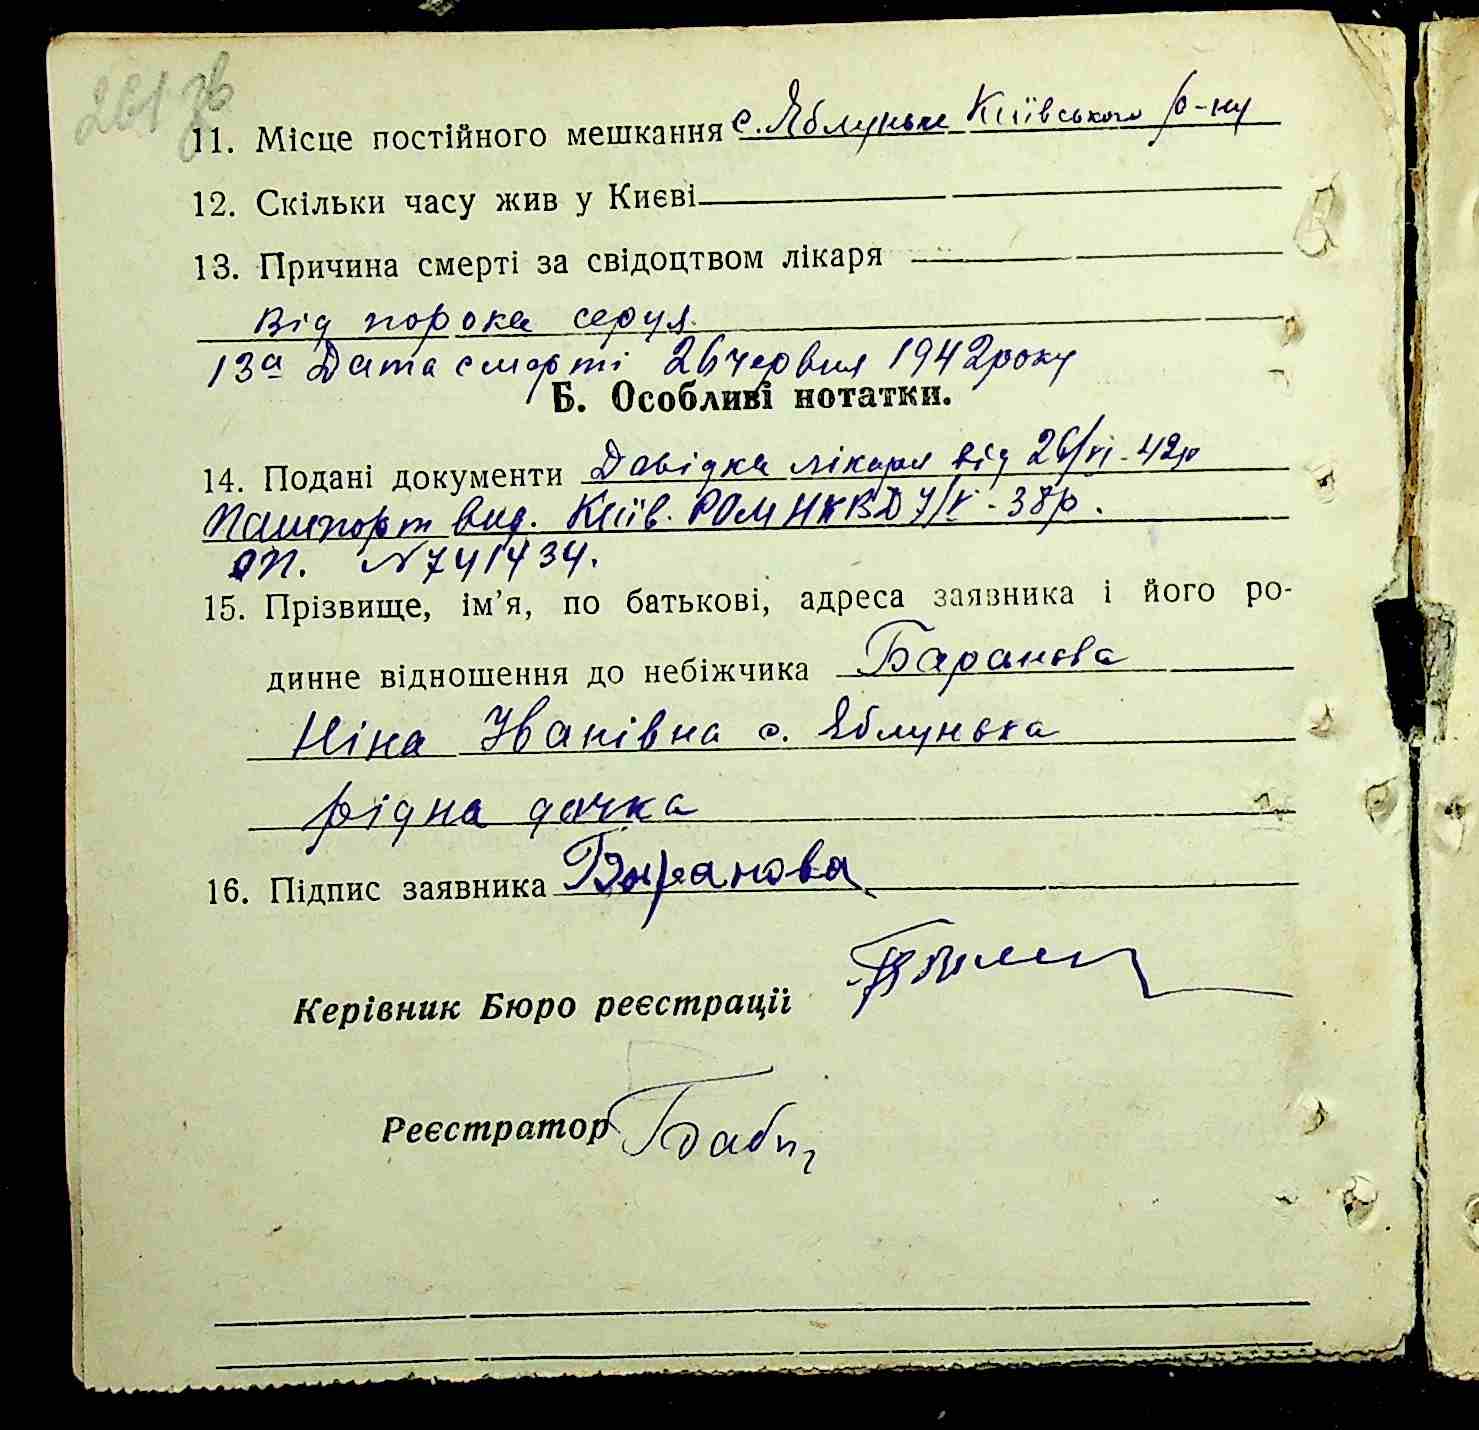 261 зв
11. Місце постійного мешкання с. Яблуньк Київського р-ну
12. Скільки часу жив у Києві
13. Причина смерті за свідоцтвом лікаря
від порока серця
13а Дата смерті 26 червня 1942 року
Б. Особливі нотатки.
14. Подані документи Довідка лікаря від 26/VI-42р
Пашпорт вид. Київ. РОМ НКВД 7/V-38р.
ЯП. N741434.
15. Прізвище, ім’я, по батькові, адреса заявника і його ро-
динне відношення до небіжчика Баранова
Ніна Іванівна с. Яблунька
рідна дочка
16. Підпис заявника Баранова
Керівник Бюро реєстрації
Реєстратор